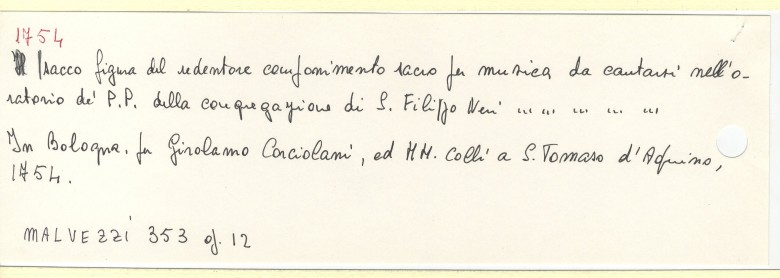 1754
Isacco figura del redentore componimento sacro per musica da cantarsi nell'o-
ratorio de' P.P. della congregazione di S. Filippo Neri ... ... ... ... ...
In Bologna, per Girolamo Corciolani, ed HH. Colli a S. Tomaso d'Aquino,
1754.
MALVEZZI 353 op. 12